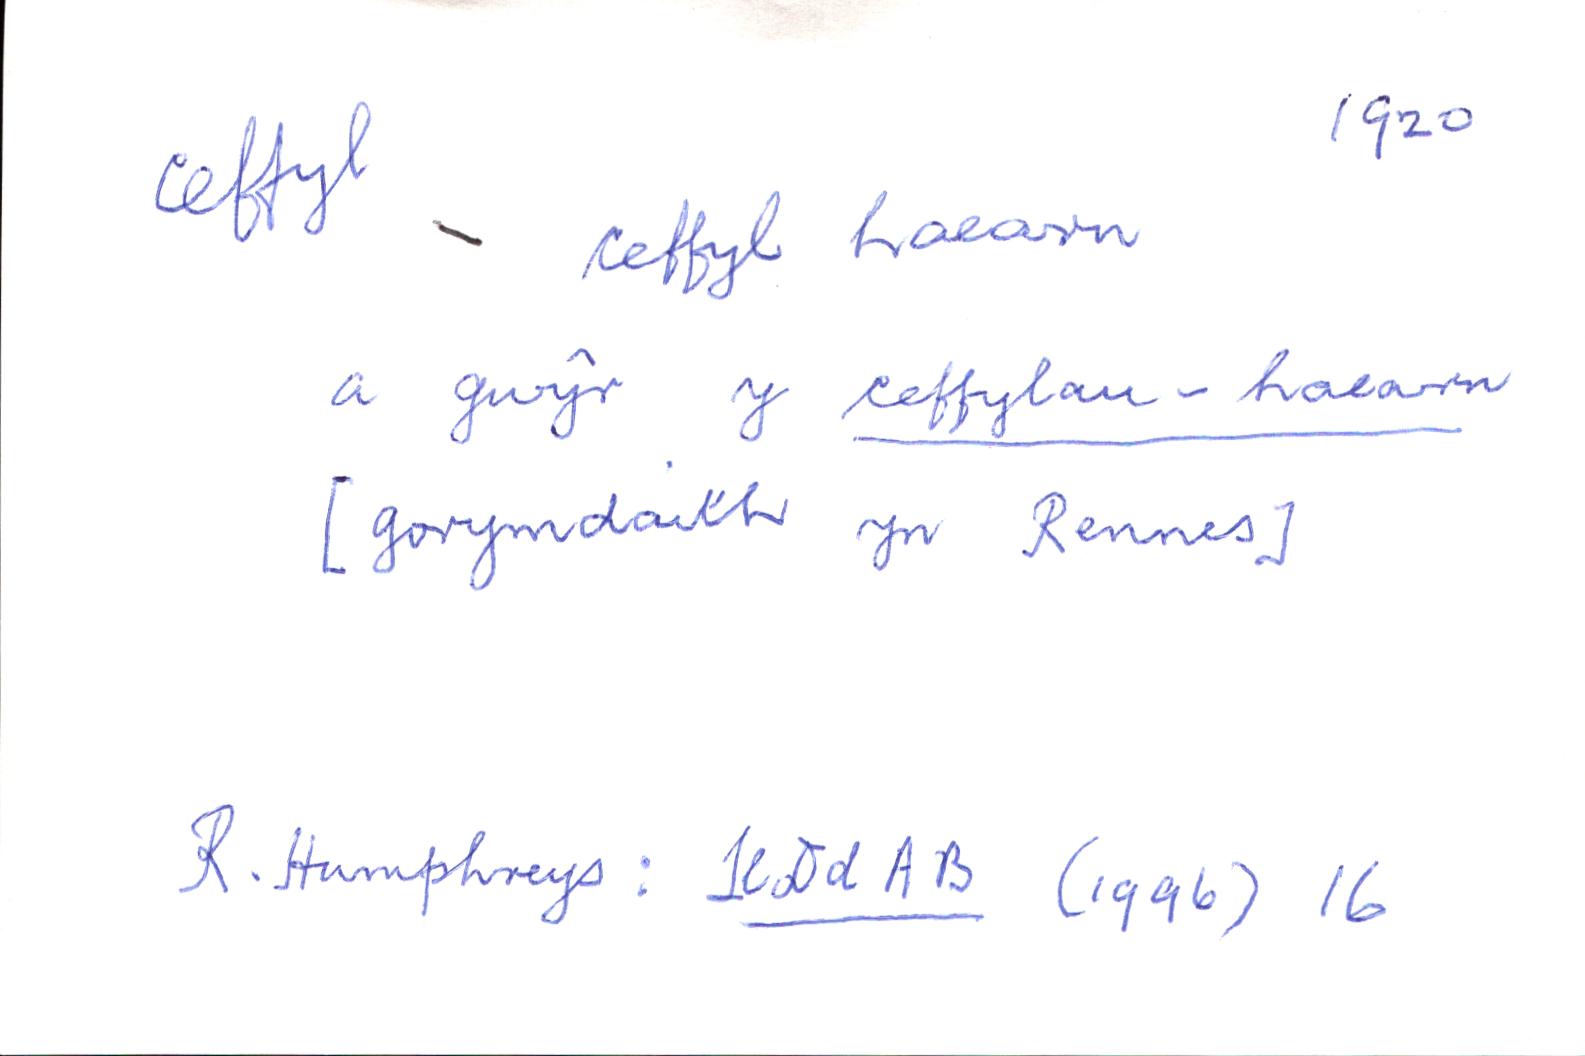 1920
ceffyl - ceffyl haearn
a gwŷr y ceffylau-haearn
[gorymdaith yn Rennes]
R. Humphreys: (1996) 16